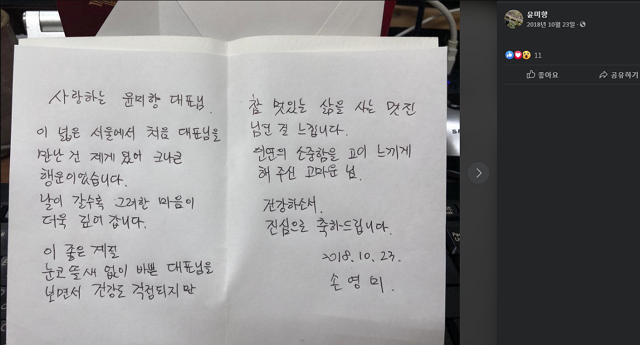 사랑하는 윤미향 대표님.
이 넓은 서울에서 처음 대표님을
만난 건 제게 있어 크나큰
행운이었습니다.
날이 갈수록 그러한 마음이
더욱 깊어 갑니다.
이 좋은 계절
눈코 뜰새 없이 바쁜 대표님을
보면서 건강도 걱정되지만
참 멋있는 삶을 사는 멋진
님인 걸 느낍니다.
인연의 소중함을 고이 느끼게
해 주신 고마운 님.
건강하소서.
진심으로 축하드립니다.
2018.10.23.
손영미.
윤미향
2018년 10월 23일
11
좋아요
공유하기